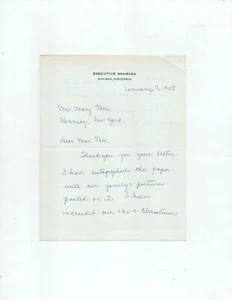 EXECUTIVE MANSION
MADISON, WISCONSIN
January 7, 1958
Mrs. Mary
New York.
Dear Mrs.
Thank you your letter.
I have autographed the paper
with our family's picture
pasted on it. I have
included our Christmas